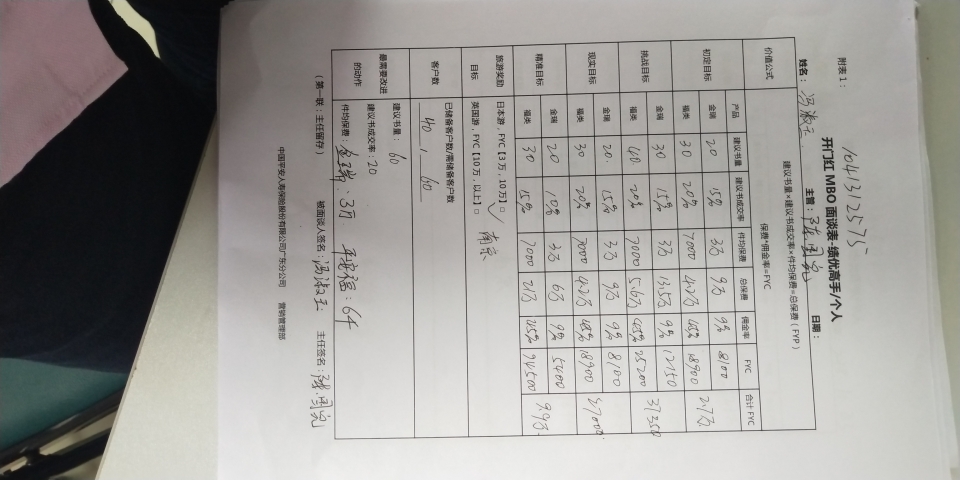 附表1：
1041312575
开门红 MBO 面谈表-绩优高手/个人
姓名：冯淑玉 主管： 日期：
价值公式 建议书量×建议书成交率×件均保费=总保费（FYP）
保费*佣金率=FYC
产品 建议书量 建议书成交率 件均保费 总保费 佣金率 FYC 合计 FYC
初定目标 金瑞 20 15% 3万 9万 9% 8100 2.7万
福类 30 20% 7000 4.2万 45% 18900
挑战目标 金瑞 30 15% 3万 13.5万 9% 12150 37350
福类 40 20% 7000 5.6万 45% 25200
现实目标 金瑞 20 15% 3万 9万 9% 8100
福类 30 20% 7000 4.2万 45% 18900
精准目标 金瑞 20 10% 3万 6万 9% 5400
福类 30 15% 7000
旅游奖励 日本游，FYC【3万，10万】□ ✓ 南京
目标 英国游，FYC【10万，以上】□
客户数 已储备客户数/需储备客户数
40 / 60
最需要改进的动作 建议书量：60
建议书成交率：20
件均保费：金瑞：3万 平安福：64
（第一联：主任留存） 被面谈人签名：冯淑玉 主任签名：
中国平安人寿保险股份有限公司广东分公司 营销管理部